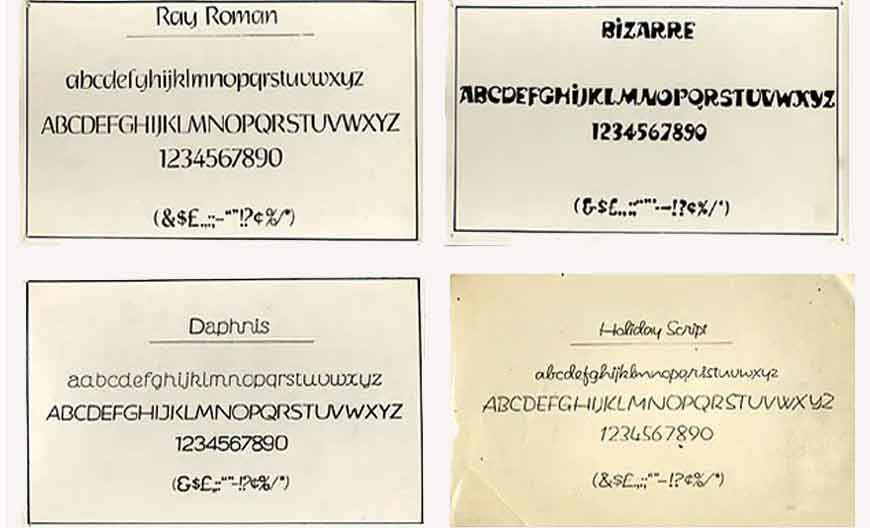 Ray Roman
abcdefghijklmnopqrstuvwxyz
ABCDEFGHIJKLMNOPQRSTUVWXYZ
1234567890
(&$£.,:;-“”!?¢%/*)
BiZARRE
ABCDEFGHiJKLMNOPQRSTUVWXYZ
1234567890
(&$£.,:;“”‘’-–!?¢%/*)
Daphnis
aabcdefghijklmnopqrstuvwxyz
ABCDEFGHIJKLMNOPQRSTUVWXYZ
1234567890
(&$£.,:;“”-!?¢%/*)
Holiday Script
abcdefghijklmnopqrsstuvwxyz
ABCDEFGHIJKLMNOPQRSTUVWXYZ
1234567890
(&$£.,:;“”-!?¢%/*)